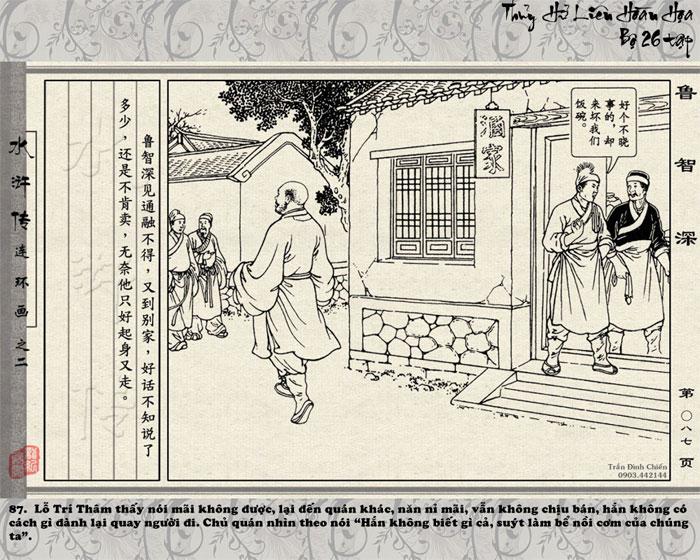 Thủy Hử Liên Hoàn Họa
Bộ 26 tập
水浒传连环画之二
鲁智深见通融不得，又到别家，好话不知说了
多少，还是不肯卖，无奈他只好起身又走。
酒家
好个不晓
事的，却
来坏我们
饭碗。
鲁智深
第〇八七页
Trần Đình Chiến
0903.442144
87. Lỗ Trí Thâm thấy nói mãi không được, lại đến quán khác, năn nỉ mãi, vẫn không chịu bán, hắn không có
cách gì đành lại quay người đi. Chủ quán nhìn theo nói “Hắn không biết gì cả, suýt làm bể nồi cơm của chúng
ta”.